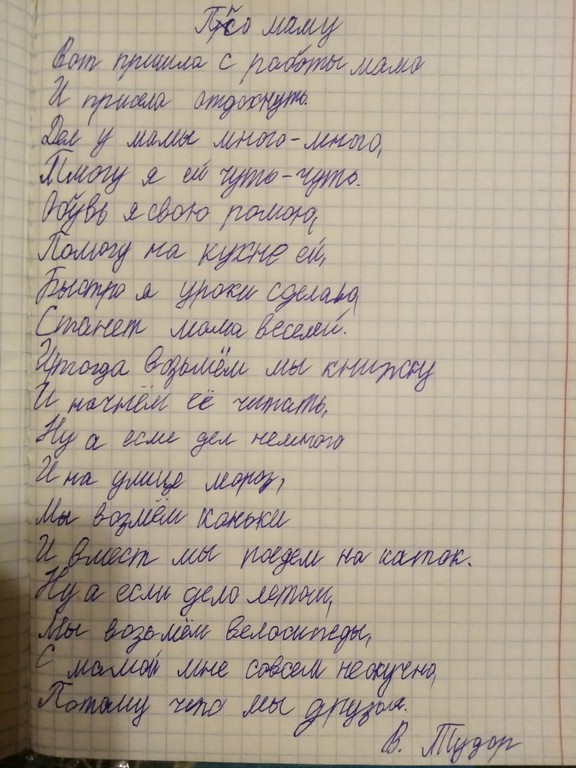 Про маму
Вот пришла с работы мама
И присела отдохнуть.
Дел у мамы много-много,
Пмогу я ей чуть-чуть.
Обувь я свою помою,
Помогу на кухне ей,
Быстро я уроки сделаю,
Станет мама веселей.
И тогда возьмём мы книжку
И начнём её читать,
Ну а если дел немного
И на улице мороз,
Мы возмём коньки
И вмест мы поедем на каток.
Ну а если дело летом,
Мы возьмём велосипеды,
С мамой мне совсем нескучно,
Потому что мы друзья.
В. Тудор